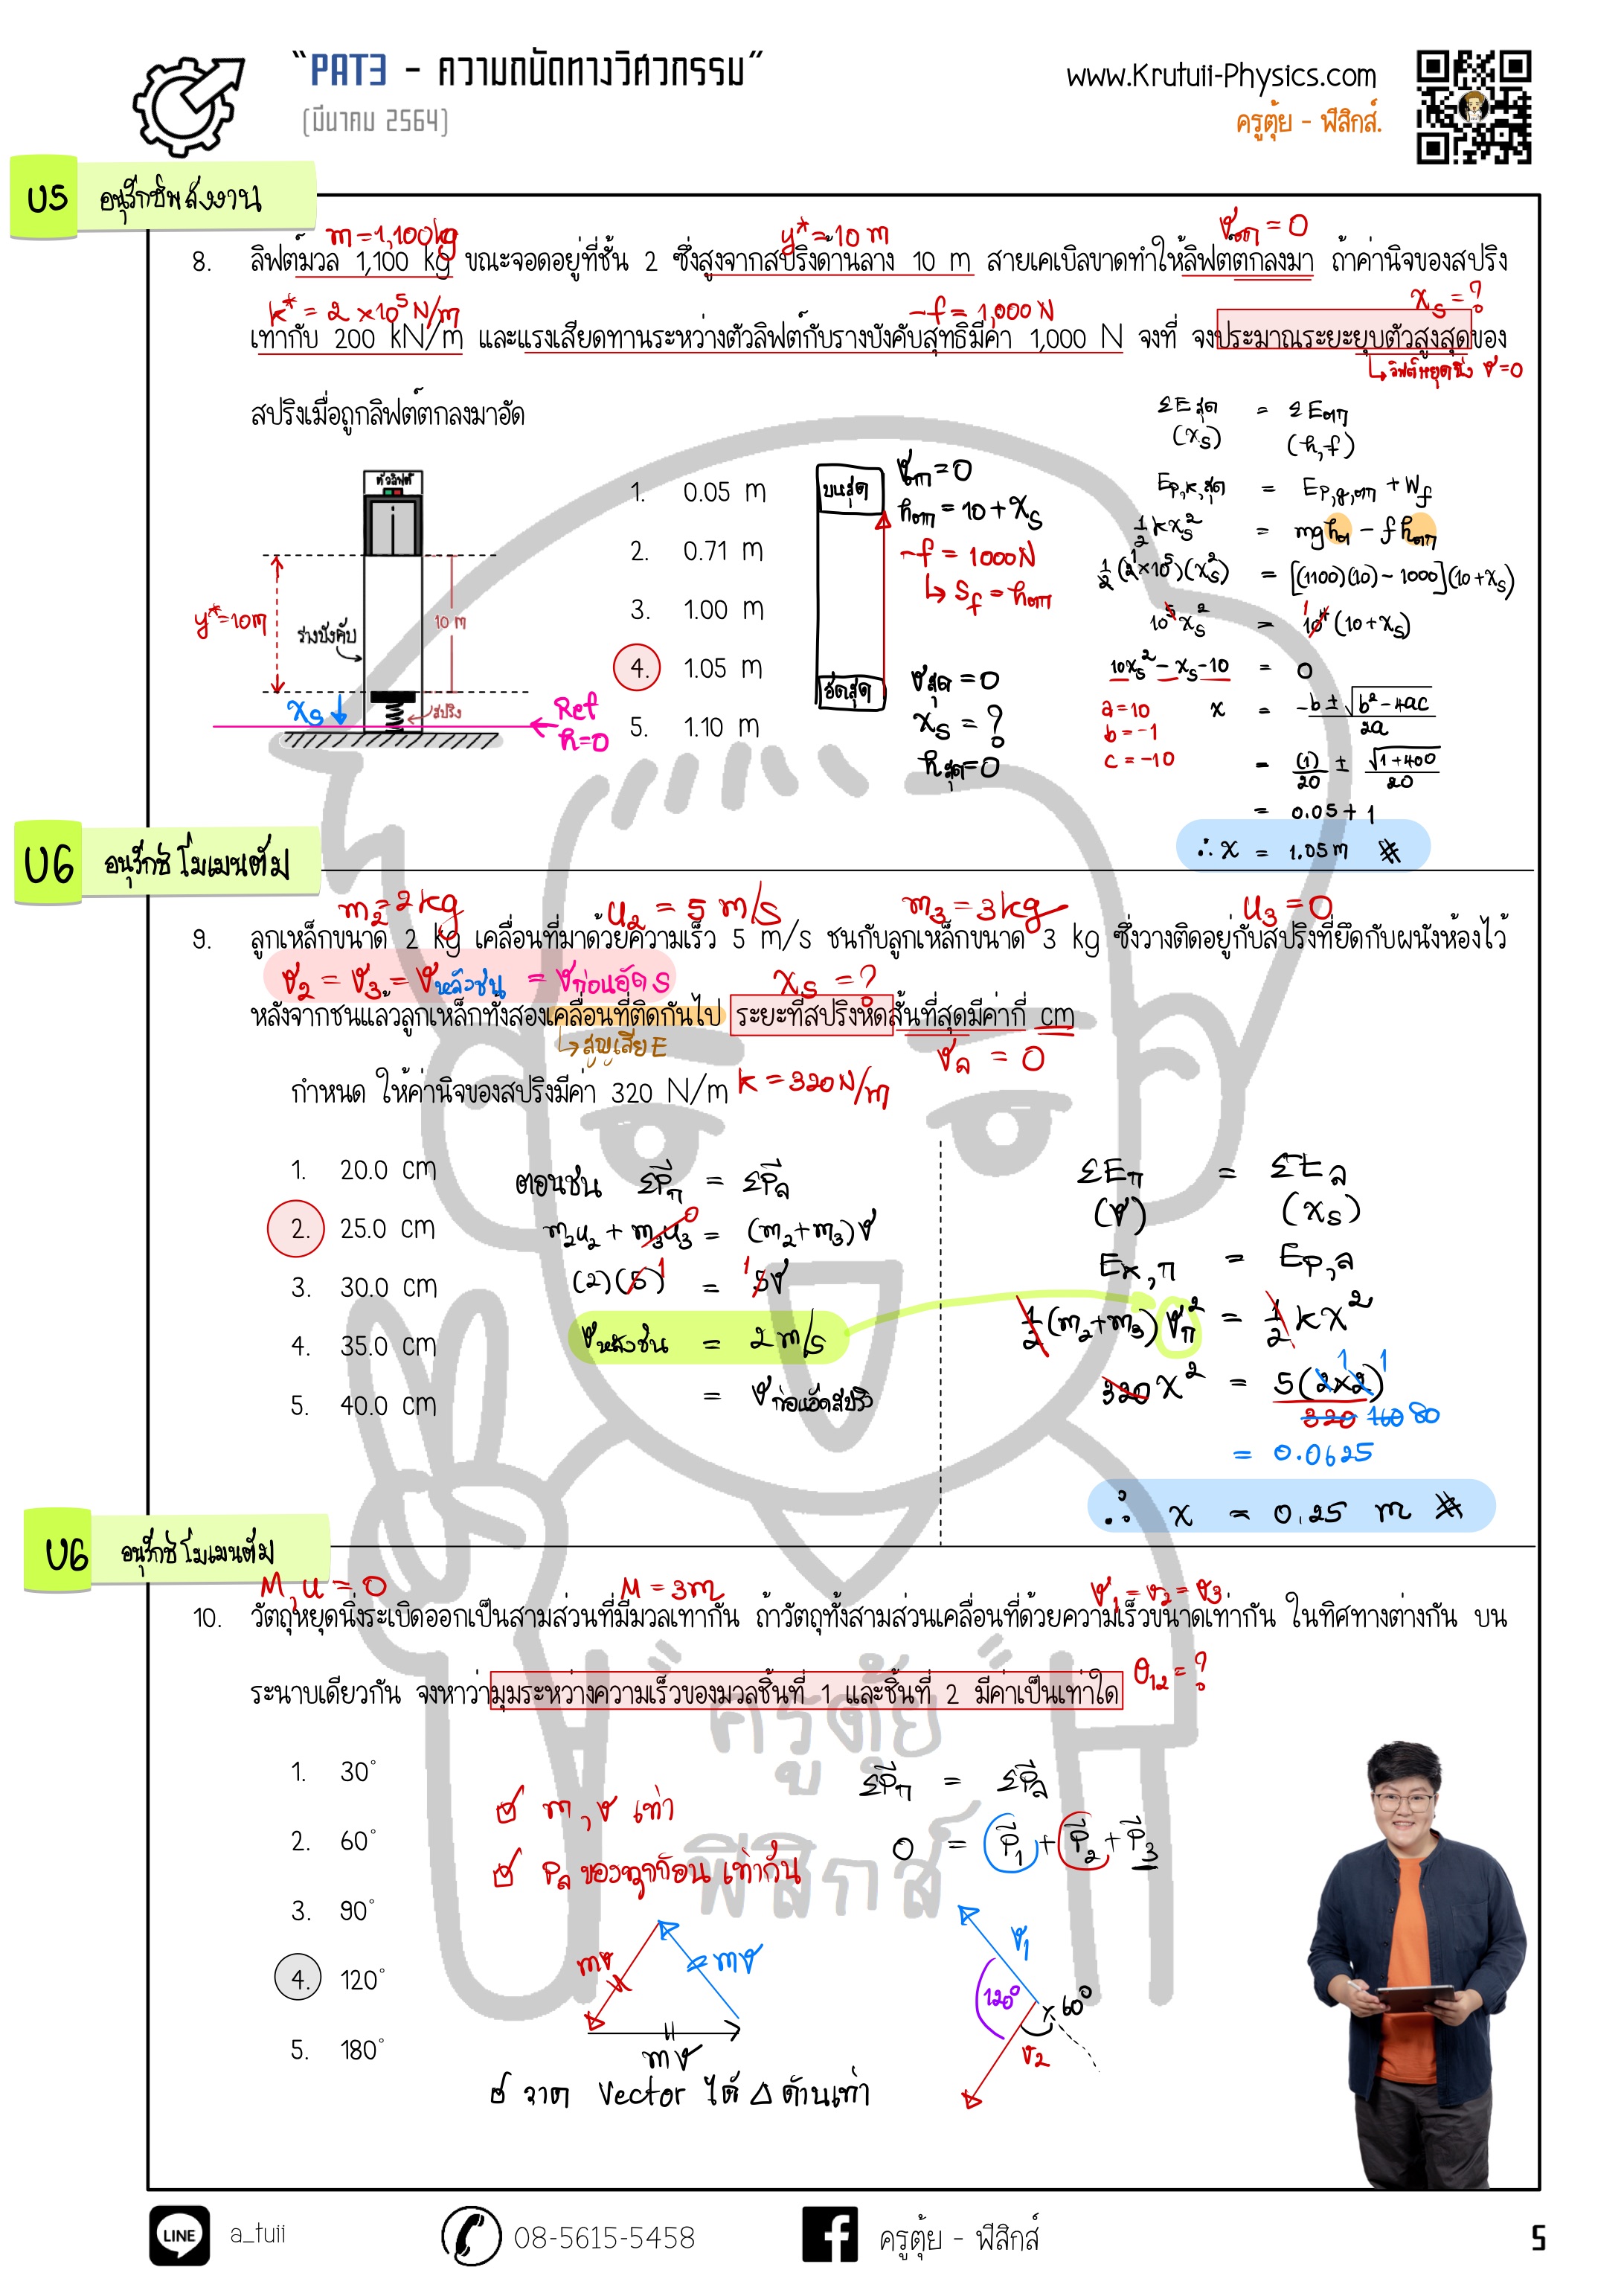 "PAT3 - ความถนัดทางวิศวกรรม"
(มีนาคม 2564)
www.Krutuii-Physics.com
ครูตุ้ย - ฟิสิกส์.
บ5 อนุรักษ์พลังงาน
m = 1,100 kg
y* = 10 m
8. ลิฟต์มวล 1,100 kg ขณะจอดอยู่ที่ชั้น 2 ซึ่งสูงจากสปริงด้านล่าง 10 m สายเคเบิลขาดทำให้ลิฟต์ตกลงมา ถ้าค่านิจของสปริง
k* = 2 ×10⁵ N/m
-f = 1,000 N
xₛ = ?
เท่ากับ 200 kN/m และแรงเสียดทานระหว่างตัวลิฟต์กับรางบังคับสุทธิมีค่า 1,000 N จงที่ จงประมาณระยะยุบตัวสูงสุดของ
↳ ลิฟต์หยุดนิ่ง v=0
สปริงเมื่อถูกลิฟต์ตกลงมาอัด
ตัวลิฟต์
y*=10m
10 m
รางบังคับ
xₛ ↓
สปริง
Ref
h=0
1. 0.05 m
2. 0.71 m
3. 1.00 m
4. 1.05 m
5. 1.10 m
บนสุด
อัดสุด
vแรก = 0
hแรก = 10 + xₛ
-f = 1000N
↳ S_f = hแรก
vสุด = 0
xₛ = ?
hสุด = 0
ΣEสุด = ΣEแรก
(xₛ) (h,f)
Ep,k,สุด = Ep,g,แรก + W_f
½kxₛ² = mgh - fhแรก
½(2×10⁵)(xₛ²) = [(1100)(10) - 1000](10+xₛ)
10⁵xₛ² = 10⁴(10+xₛ)
10xₛ² - xₛ - 10 = 0
a = 10
b = -1
c = -10
x = -b ± √b² - 4ac / 2a
= (1)/20 ± √1+400/20
= 0.05 + 1
∴ x = 1.05 m #
บ6 อนุรักษ์โมเมนตัม
m₂=2kg
u₂ = 5 m/s
m₃ = 3kg
u₃ = 0
9. ลูกเหล็กขนาด 2 kg เคลื่อนที่มาด้วยความเร็ว 5 m/s ชนกับลูกเหล็กขนาด 3 kg ซึ่งวางติดอยู่กับสปริงที่ยึดกับผนังห้องไว้
v₂ = v₃ = vหลังชน = vก่อนอัด S
xₛ = ?
หลังจากชนแล้วลูกเหล็กทั้งสองเคลื่อนที่ติดกันไป ระยะที่สปริงหดสั้นที่สุดมีค่ากี่ cm
↳ สูญเสีย E
vล = 0
กำหนด ให้ค่านิจของสปริงมีค่า 320 N/m
k = 320 N/m
1. 20.0 cm
2. 25.0 cm
3. 30.0 cm
4. 35.0 cm
5. 40.0 cm
ตอนชน ΣPก = ΣPล
m₂u₂ + m₃u₃ 0 = (m₂+m₃)v
(2)(5) 1 = 1 5v
vหลังชน = 2 m/s
= vก่อนอัดสปริง
ΣEก = ΣEล
(v) (xₛ)
Ek,ก = Ep,ล
½(m₂+m₃)vก² = ½kx²
320x² = 5(2×2) 1 1
320 160 80
= 0.0625
∴ x = 0.25 m #
บ6 อนุรักษ์โมเมนตัม
M, u = 0
M = 3m
v₁ = v₂ = v₃
10. วัตถุหยุดนิ่งระเบิดออกเป็นสามส่วนที่มีมวลเท่ากัน ถ้าวัตถุทั้งสามส่วนเคลื่อนที่ด้วยความเร็วขนาดเท่ากัน ในทิศทางต่างกัน บน
ระนาบเดียวกัน จงหาว่ามุมระหว่างความเร็วของมวลชิ้นที่ 1 และชิ้นที่ 2 มีค่าเป็นเท่าใด
θ₁₂ = ?
1. 30°
2. 60°
3. 90°
4. 120°
5. 180°
☑ m, v เท่า
☑ Pล ของทุกก้อน เท่ากัน
mv
mv
mv
☑ จาก Vector ได้ △ ด้านเท่า
ΣPก = ΣPล
0 = P₁ + P₂ + P₃
v₁
120°
60°
v₂
ครูตุ้ย
ฟิสิกส์
LINE
a_tuii
08-5615-5458
ครูตุ้ย - ฟิสิกส์
5